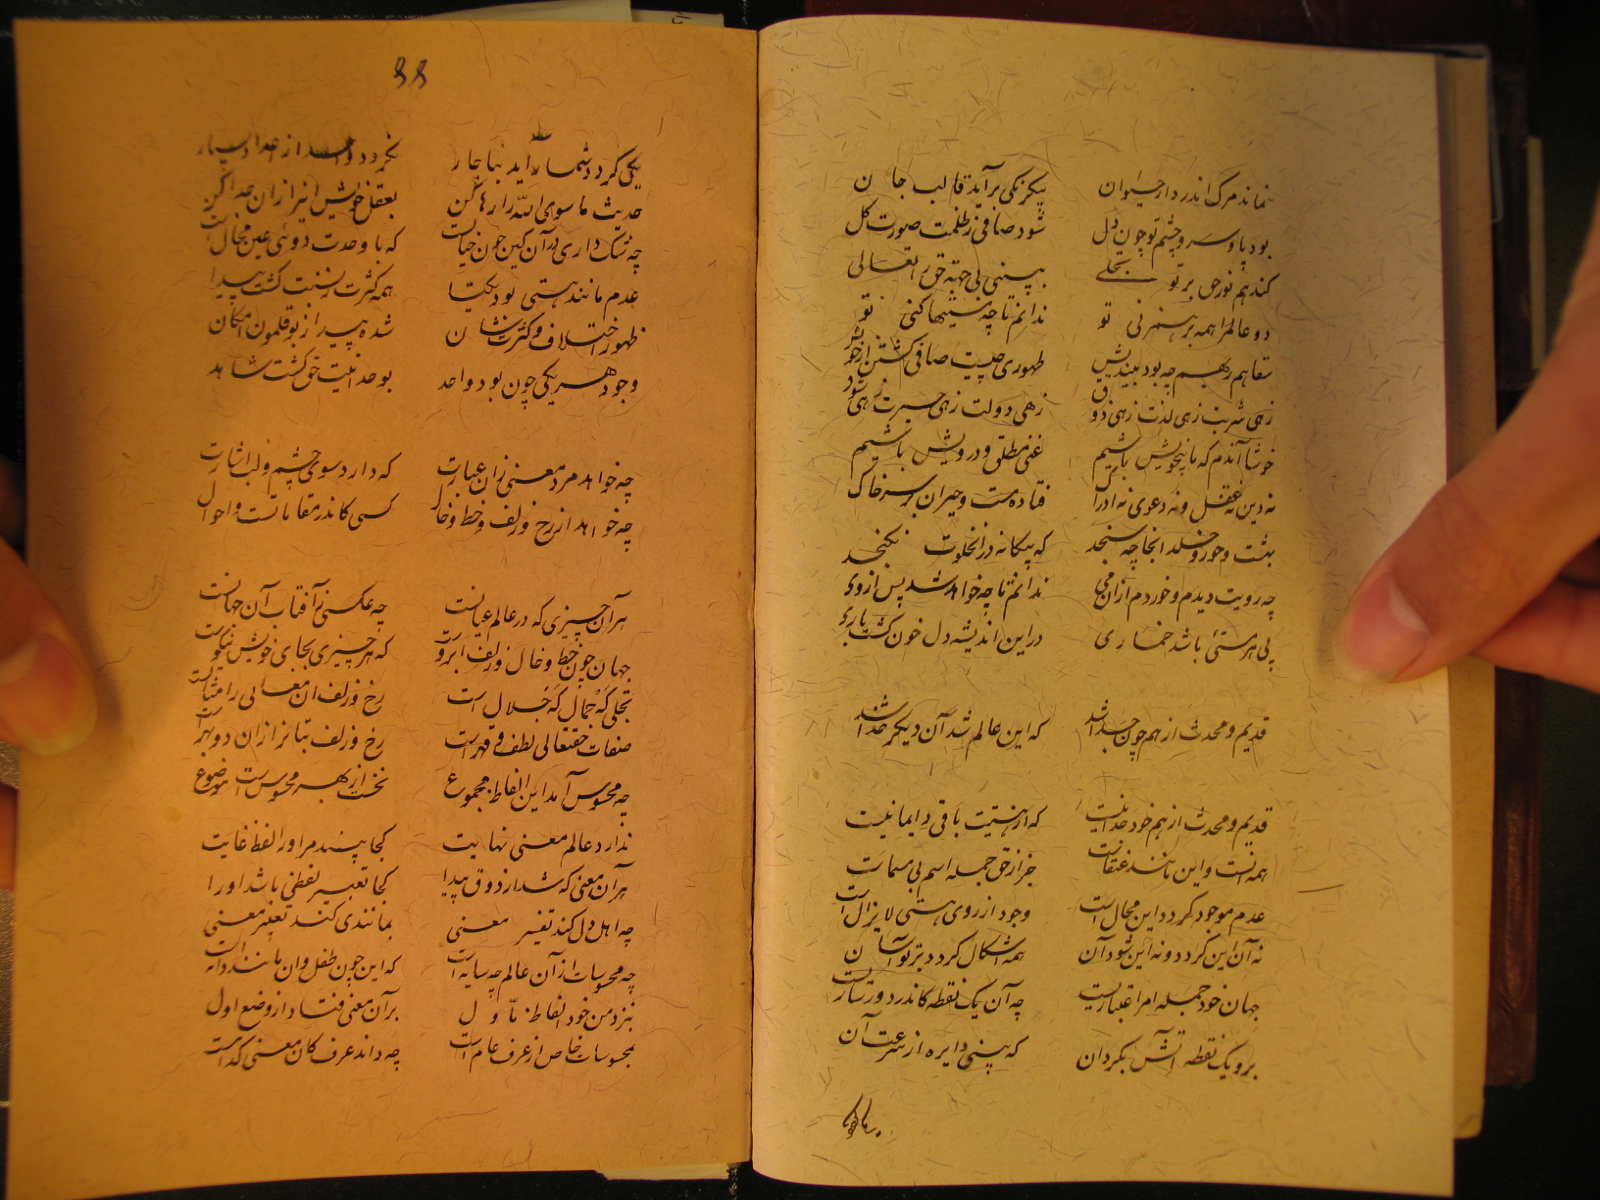 نماند مرگ اندر دار حیوان بیکرنکی برآید قالب جان
بود پا و سر و چشم تو چون دل شود صافی ز ظلمت صورت کل
کند هم نور حق بر تو تجلی ببینی بی جهة حق تعالی
دو عالم را همه برهم زنی تو ندانم تا چه مستیها کنی تو
سقاهم ربهم چه بود بیندیش طهوری چیست صافی کشتن از خویش
زهی شربت زهی لذت زهی ذوق زهی دولت زهی حیرت زهی شوق
خوشا آندم که ما بیخویش باشیم غنی مطلق و درویش باشیم
نه دین نه عقل و نه دعوی نه ادراک فتاده مست و حیران بر سر خاک
بهشت و حور و خلد انجا چه سنجد که بیکانه در آنخلوت نکنجد
چه رویت دیدم و خوردم ازان می ندانم تا چه خواهد شد پس ازوی
پی هر مستئ باشد خماری درین اندیشه دل خون کشت باری
قدیم و محدث از هم چون جدا شد که این عالم شد آن دیکر خدا شد
قدیم و محدث از هم خود جدا نیست که از هستیست باقی دایما نیست
همه انست و این مانند عنقاست جز از حق جمله اسم بی مسماست
عدم موجود کردد این محال است وجود از روی هستی لایزال است
نه آن این کردد و نه این شود آن همه اشکال کردد بر تو آسان
جهان خود جمله امر اعتباریست چه آن یک نقطه کاندر دور ساریست
برو یک نقطه آتش بکردان که بینی دایره از سرعت آن
یکی کر در شمار آید بناچار نکردد واحد از اعداد بسیار
حدیث ما سوی الله را رها کن بعقل خویش اینرا زان جدا کن
چه شک داری در آن کین چون خیالست که با وحدت دوئی عین محالست
عدم مانند هستی بود یکتا همه کثرت ز نسبت کشت پیدا
ظهور اختلاف و کثرت شان شده پیدا ز بوقلمون امکان
وجود هر یکی چون بود واحد بوحدانیت حق کشت شاهد
چه خواهد مرد معنی زان عبارت که دارد سوی چشم و لب اشارت
چه خواهد از رخ و زلف و خط و خال کسی کاندر مقاماتست و احوال
هر آن چیزی که در عالم عیانست چه عکسی ز آفتاب آن جهانست
جهان چون خط و خال و زلف ابروست که هر چیزی بجای خویش نیکوست
تجلی که جمال که جلال است رخ و زلف ان معانی را مثالست
صفات حقتعالی لطف و قهر است رخ و زلف بتانرا زان دو بهر است
چه محسوس آمد این الفاظ مجموع نخست از بهر محسوس است موضوع
ندارد عالم معنی نهایت کجا بیند مر او را لفظ غایت
هر آن معنی که شد از ذوق پیدا کجا تعبیر لفظی باشد او را
چه اهل دل کند تفسیر معنی بمانندی کند تعبیر معنی
چه محسوسات از آن عالم چه سایه است که این چون طفل و ان مانند دایه است
بنزد من خود الفاظ ماول بر آن معنی فتاد از وضع اول
بمحسوسات خاص از عرف عام است چه داند عرف کان معنی کدام است